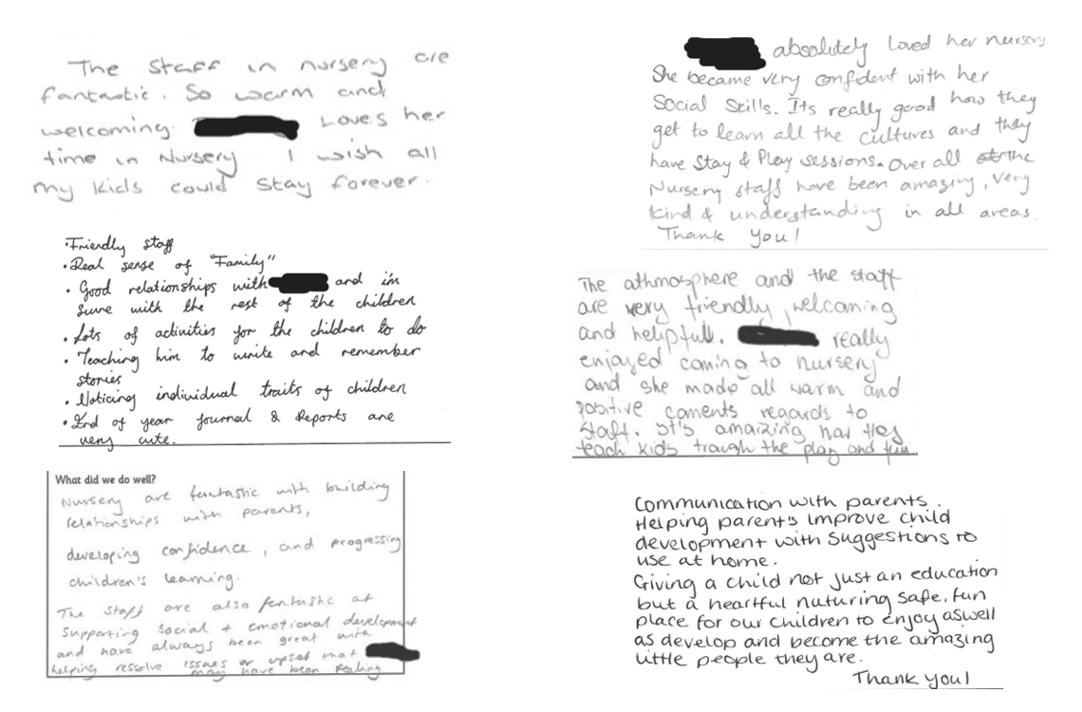 The staff in nursery are
fantastic. So warm and
welcoming. Loves her
time in Nursery I wish all
my kids could stay forever.
·Friendly staff
·Real sense of "Family"
·Good relationships with and i'm
sure with the rest of the children
·Lots of activities for the children to do
·Teaching him to write and remember
stories
·Noticing individual traits of children
·End of year Journal & Reports are
very cute.
What did we do well?
Nursery are fantastic with building
relationships with parents,
developing confidence, and progressing
children's learning.
The staff are also fantastic at
supporting social + emotional development
and have always been great with
helping resolve issues or upset that
may have been feeling
absolutely Loved her nursery
She became very confident with her
Social Skills. Its really good how they
get to learn all the cultures and they
have Stay & Play sessions. Over all the
Nursery staff have been amazing, very
kind & understanding in all areas.
Thank you!
The athmosphere and the staff
are very friendly, welcoming
and helpfull. really
enjoyed coming to nursery
and she made all warm and
positive coments regards to
staff. It's amaizing how they
teach kids trough the play and fun
Communication with parents.
Helping parents improve child
development with suggestions to
use at home.
Giving a child not just an education
but a heartful nuturing safe, fun
place for our children to enjoy aswell
as develop and become the amazing
little people they are.
Thank you!